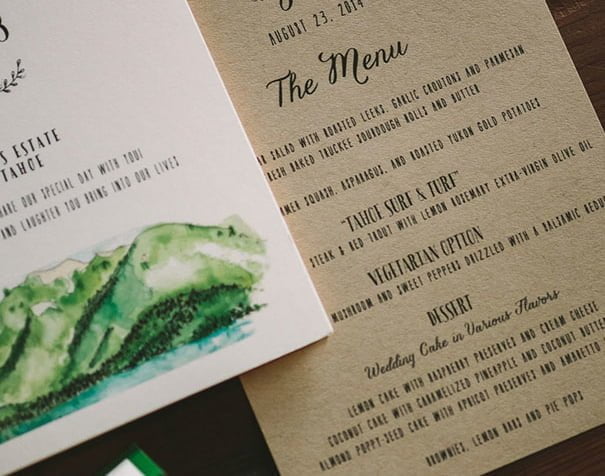 S ESTATE
TAHOE
OUR SPECIAL DAY WITH YOU!
AND LAUGHTER YOU BRING INTO OUR LIVES
AUGUST 23, 2014
The Menu
SALAD WITH ROASTED LEEKS, GARLIC CROUTONS AND PARMESAN
BAKED TRUCKEE SOURDOUGH ROLLS AND BUTTER
SQUASH, ASPARAGUS, AND ROASTED YUKON GOLD POTATOES
"TAHOE SURF & TURF"
STEAK & RED TROUT WITH LEMON ROSEMARY EXTRA-VIRGIN OLIVE OIL
VEGETARIAN OPTION
MUSHROOM AND SWEET PEPPERS DRIZZLED WITH A BALSAMIC REDU
DESSERT
Wedding Cake in Various Flavors
LEMON CAKE WITH RASPBERRY PRESERVES AND CREAM CHEESE
COCONUT CAKE WITH CARAMELIZED PINEAPPLE AND COCONUT BUTTER
ALMOND POPPY-SEED CAKE WITH APRICOT PRESERVES AND AMARETTO
BROWNIES, LEMON BARS AND PIE POPS